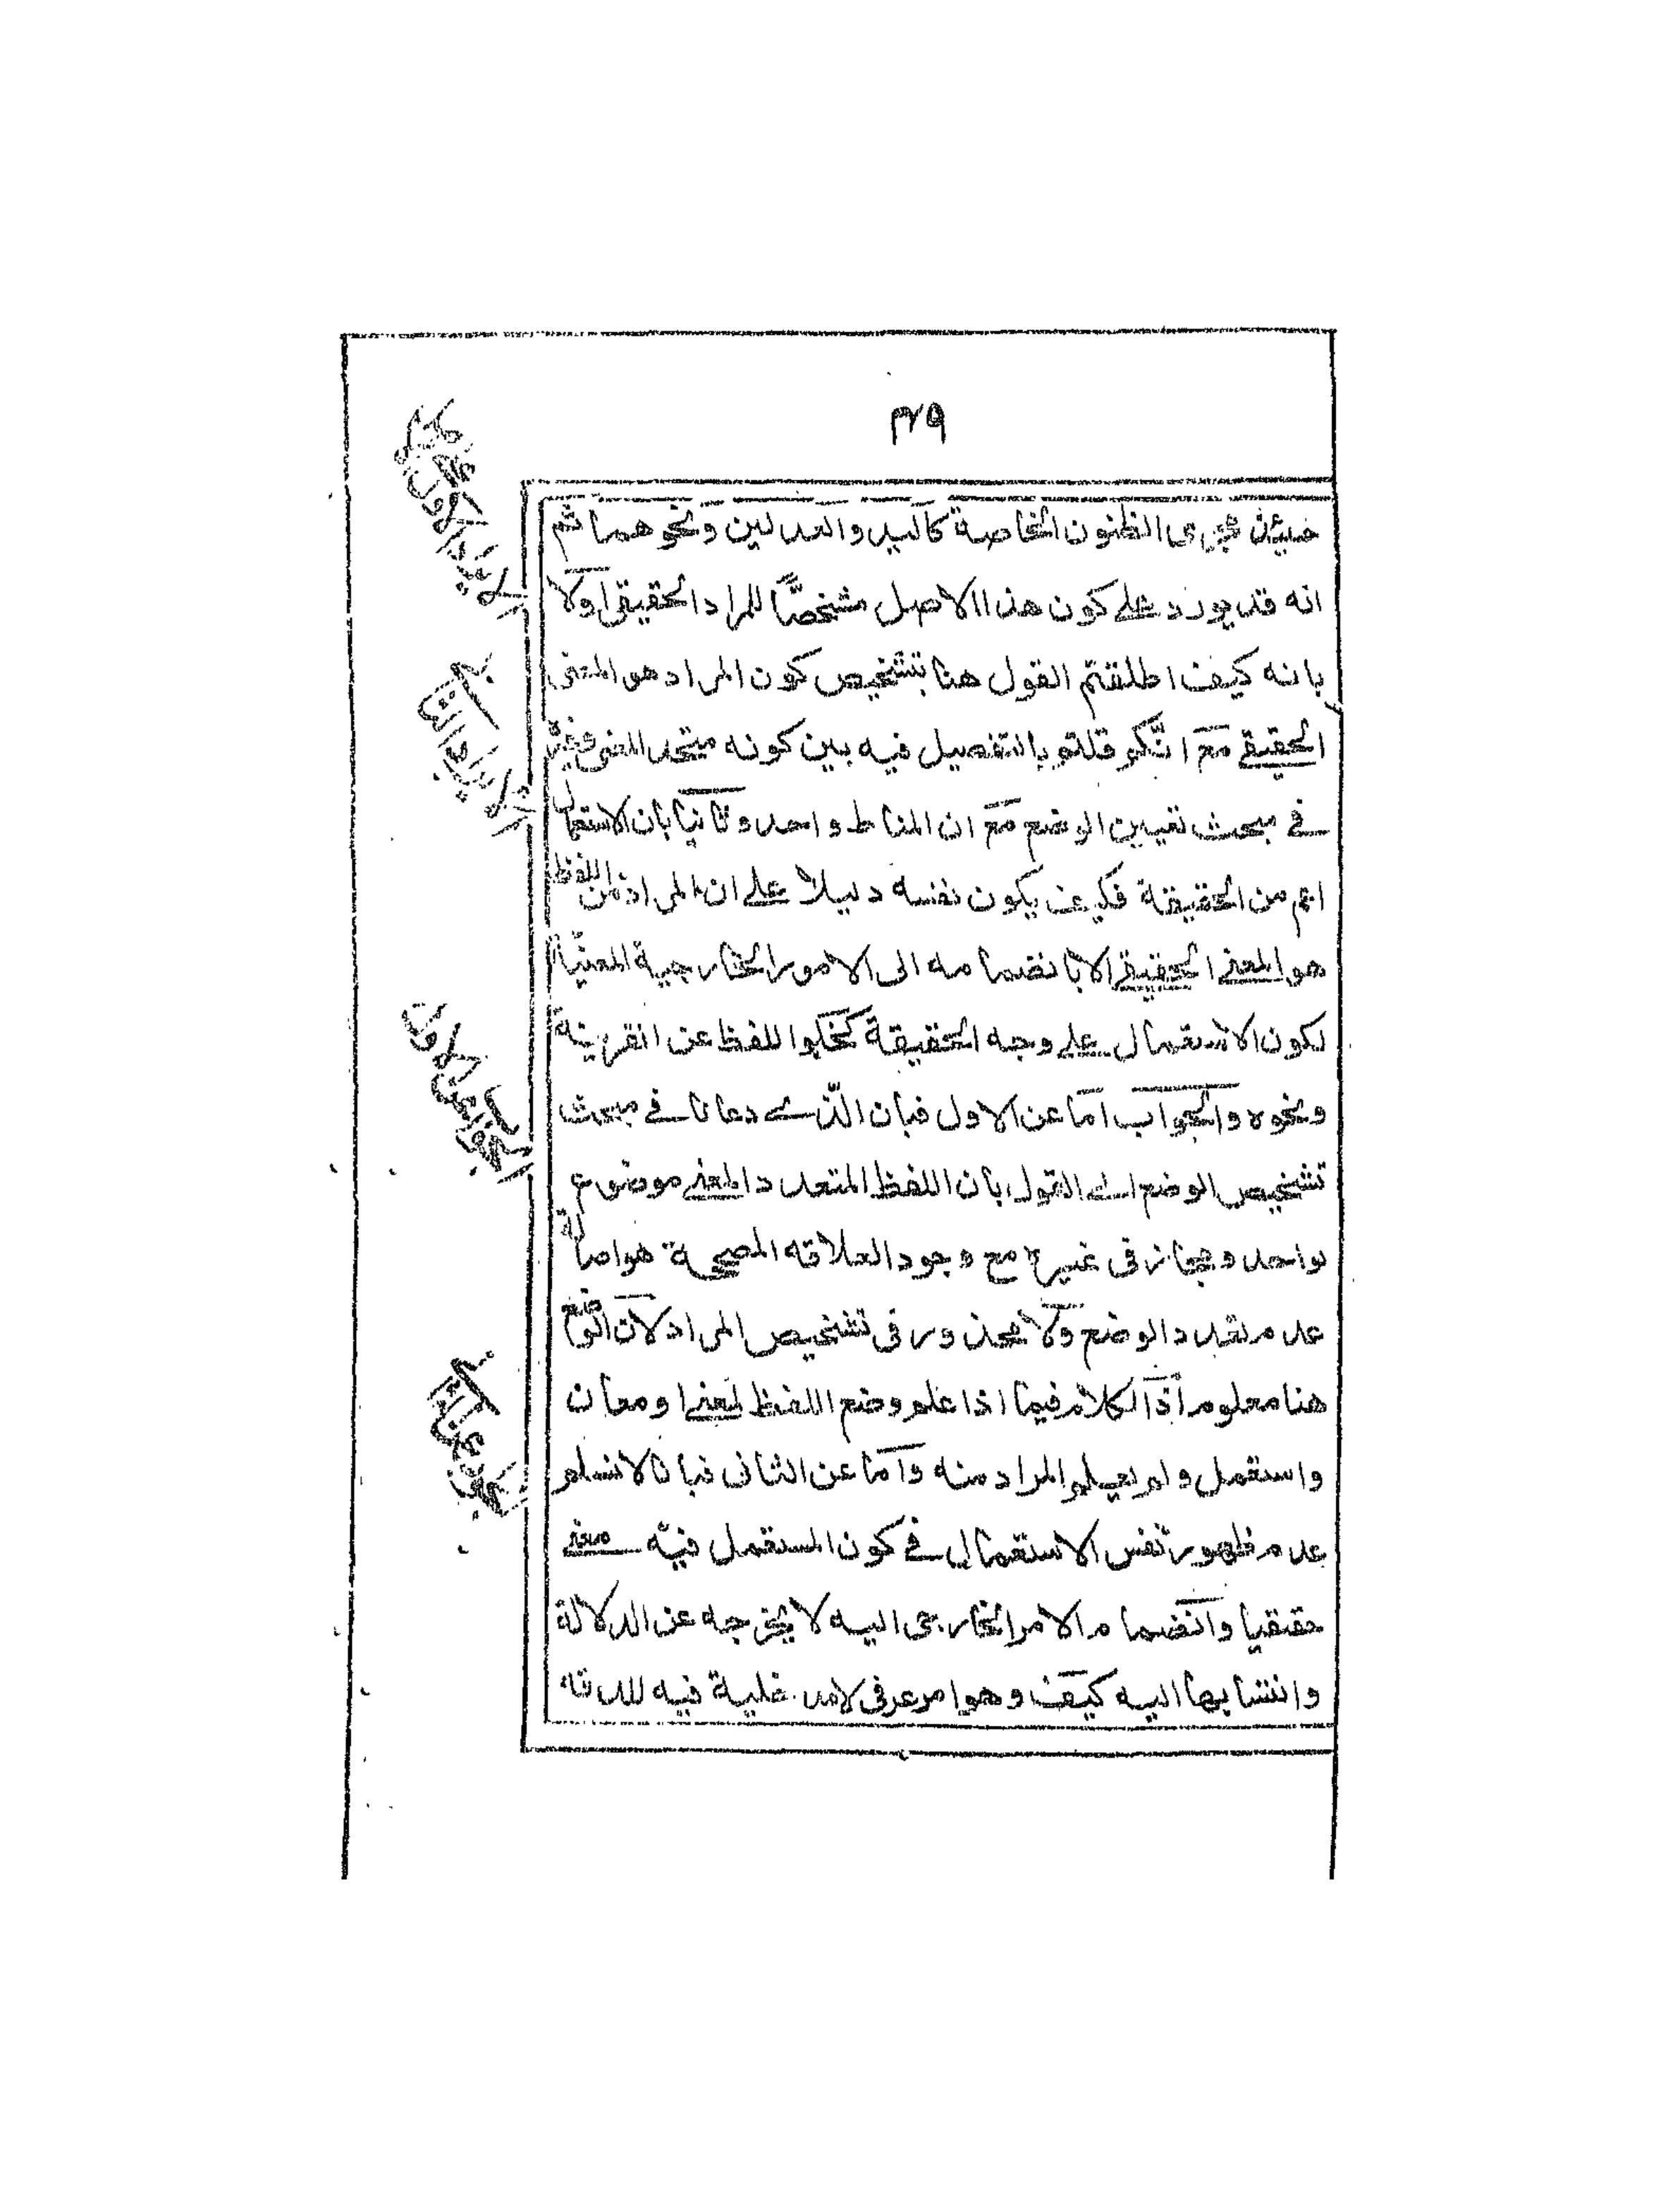 ٣٧٩
حينئذ مجرى الظنون الخاصة كاليد والعدلين ونحوهما ثم
انه قد يورد على كون هذا الاصل مشخصًّا للمراد الحقيقي اولا
بانه كيف اطلقتم القول هنا بتشخيص كون المراد هو المعنى
الحقيقي مع انّكم قلتم بالتفصيل فيه بين كونه متحد المعنى وغيره
في مبحث تعيين الوضع مع ان المناط واحد وثانيا بان الاستعمال
اعم من الحقيقة فكيف يكون نفسه دليلا على ان المراد من اللفظ
هو المعنى الحقيقي الا بانضمامه الى الامور الخارجية المعينة
لكون الاستعمال على وجه الحقيقة كخلو اللفظ عن القرينة
ونحوه والجواب اما عن الاول فبان الّذي دعانا في مبحث
تشخيص الوضع الى القول بان اللفظ المتعدد المعنى موضوع
لواحد ومجاز في غيره مع وجود العلاقه المصححة هو اصالة
عدم تعدد الوضع ولا محذور في تشخيص المراد لان الوضع
هنا معلوم اذ الكلام فيما اذا علم وضع اللفظ لمعنى او معان
واستعمل ولم يعلم المراد منه واما عن الثاني فبانا لا نسلم
عدم ظهور نفس الاستعمال في كون المستعمل فيه معنى
حقيقيا وانضمام الامر الخارجى اليه لا يخرجه عن الدلالة
وانتسابها اليه كيف وهو امر عرفى لا مدخلية فيه للدقة
الايراد الاول
الايراد الثاني
الجواب عن الاول
الجواب عن الثاني